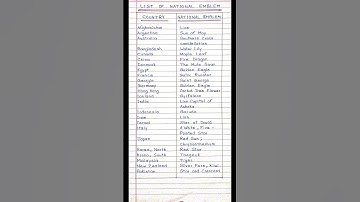 LIST OF NATIONAL EMBLEM
COUNTRY NATIONAL EMBLEM
Afghanistan Lion
Argentina Sun of May
Australia Southern Cross
constellation
Bangladesh Water Lily
Canada Maple Leaf
China Fire Dragon
Denmark The Mute Swan
Egypt Golden Eagle
France Gallic Rooster
Georgia Saint George
Germany Golden Eagle
Hong Kong Orchid Tree Flower
Iceland Gyrfalcon
India Lion Capital of
Ashoka
Indonesia Garuda
Iran Lion
Israel Star of David
Italy A White, Five-
Pointed Star
Japan Red Sun,
Korea, North Red Star
Korea, South Taegeuk
Malaysia Tiger
New Zealand Silver Fern, Kiwi
Pakistan Star and Crescent